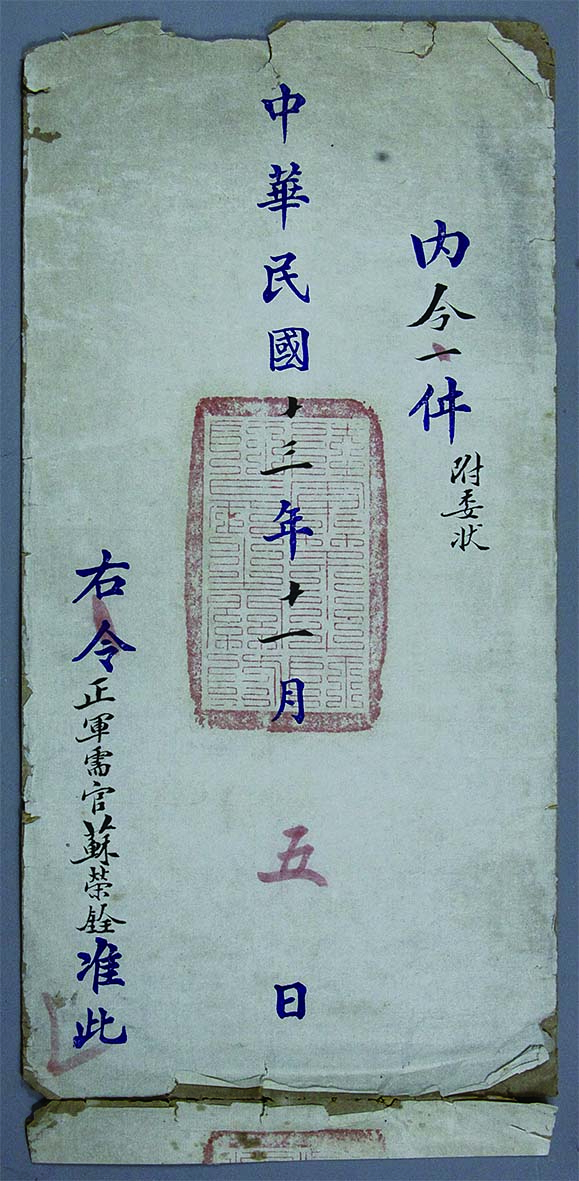 內令一件附委狀
中華民國十三年十一月五日
右令正軍需官蘇榮銓准此